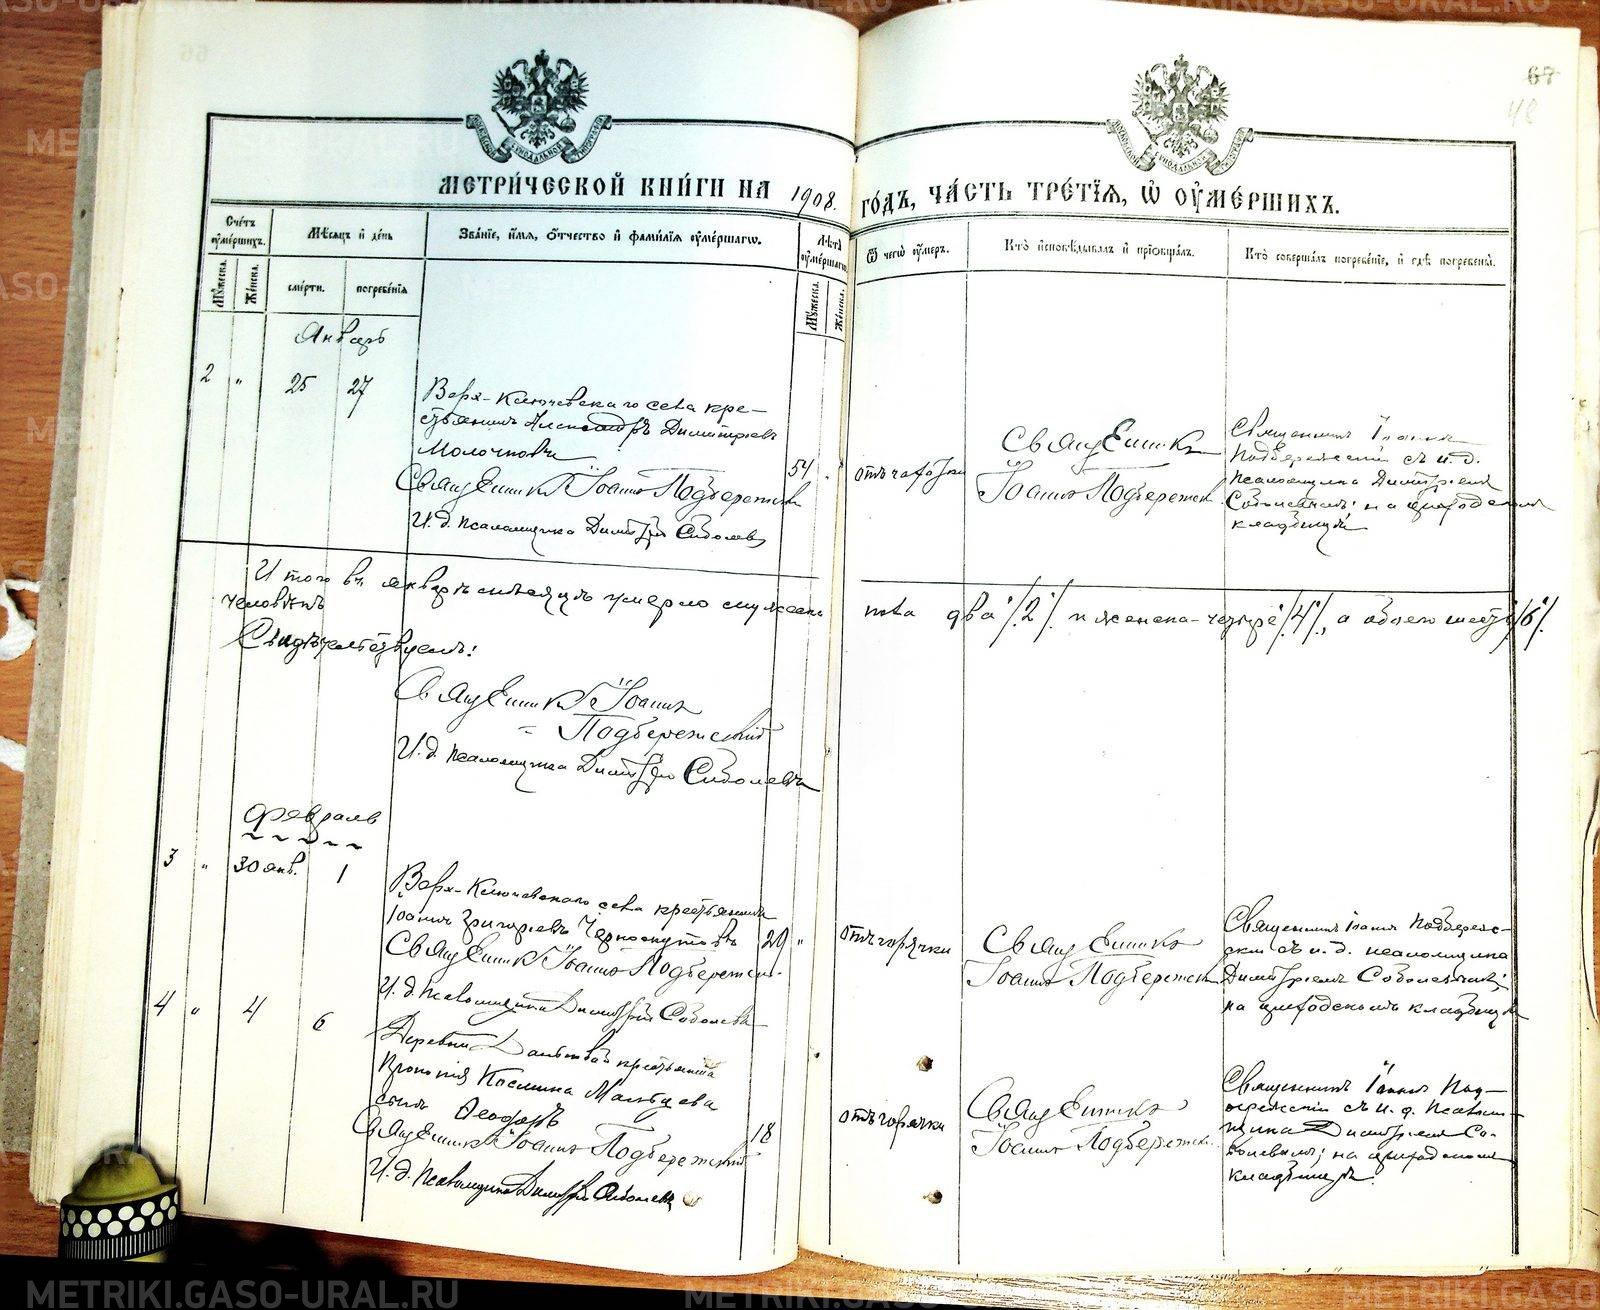 METRIKI.GASO-URAL.RU
67
48
МЕТРИ́ЧЕСКОЙ КНИ́ГИ НА 1908. ГО́ДЪ, ЧА́СТЬ ТРЕ́ТЇЯ, Ѡ ОУ҆МЕ́РШИХЪ.
Сче́тъ оу҆ме́ршихъ.
Мѣ́сяцъ и де́нь
Зва́нїе, и҆́мя, ѻ҆́тчество и҆ фами́лїя оу҆ме́ршагѡ.
Лѣ́та оу҆ме́ршагѡ.
Ѿ чегѡ̀ оу҆́меръ.
Кто̀ и҆сповѣ́дывалъ и҆ прїѡбща́лъ.
Кто̀ соверша́лъ погребе́нїе, и҆ гдѣ̀ погребены̀.
Му́жеска.
Же́нска.
сме́рти.
погребе́нїя
Му́жеска.
Же́нска.
Январь
2 " 25 27
Верх-Ключевскаго села кре-
стьянинъ Александръ Димитріевъ
Молочковъ
54 "
отъ чахотки
Священникъ Іоаннъ Подбережскій
И. д. псаломщика Димитрій Соболевъ
Священникъ
Іоаннъ Подбережскій
Священникъ Іоаннъ
Подбережскій съ и. д.
псаломщика Димитріемъ
Соболевымъ; на приходскомъ
кладбищѣ
Итого въ январѣ мѣсяцѣ умерло мужеска пола два /2/ и женска-четыре /4/, а обоего шесть /6/
человѣкъ
Свидѣтельствуемъ:
Священникъ Іоаннъ
Подбережскій
И. д. псаломщика Димитрій Соболевъ
Февраль
3 " 30 янв. 1
Верх-Ключевскаго села крестьянинъ
Іоаннъ Григорьевъ Черноскутовъ
29 "
отъ горячки
Священникъ Іоаннъ Подбережскій
И. д. Псаломщика Димитрій Соболевъ
Священникъ
Іоаннъ Подбережскій
Священникъ Іоаннъ Подбереж-
скій съ и. д. псаломщика
Димитріемъ Соболевымъ;
на приходскомъ кладбищѣ
4 " 4 6
Деревни крестьянина
Прокопія Космина Мальцева
сынъ Ѳеодоръ
18
отъ горячки
Священникъ Іоаннъ Подбережскій
И. д. Псаломщика Димитрій Соболевъ
Священникъ
Іоаннъ Подбережскій
Священникъ Іоаннъ Под-
бережскій съ и. д. Псалом-
щика Димитріемъ Со-
болевымъ; на приходскомъ
кладбищѣ.
METRIKI.GASO-URAL.RU